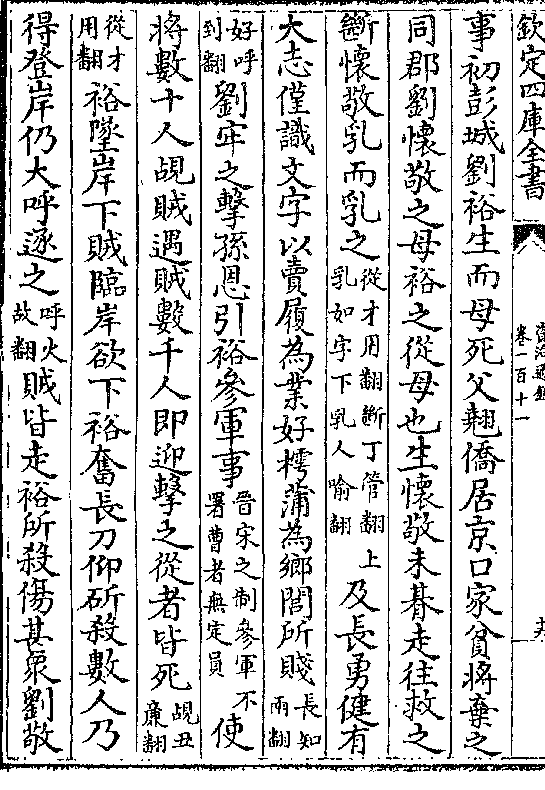 欽定四庫全書
資治通鑑
卷一百十一
十六
事初彭城劉裕生而母死父翹僑居京口家貧將棄之
同郡劉懷敬之母裕之從母也生懷敬未朞走往救之
斷懷敬乳而乳之從才用翻斷丁管翻上乳如字下乳人喻翻及長勇健有
大志僅識文字以賣履為業好樗蒲為鄉閭所賤長知兩翻
好呼到翻劉牢之擊孫恩引裕參軍事晉宋之制參軍不署曹者無定員使
將數十人覘賊遇賊數千人即迎擊之從者皆死覘丑廉翻
從才用翻裕墜岸下賊臨岸欲下裕奮長刀仰斫殺數人乃
得登岸仍大呼逐之呼火故翻賊皆走裕所殺傷甚衆劉敬